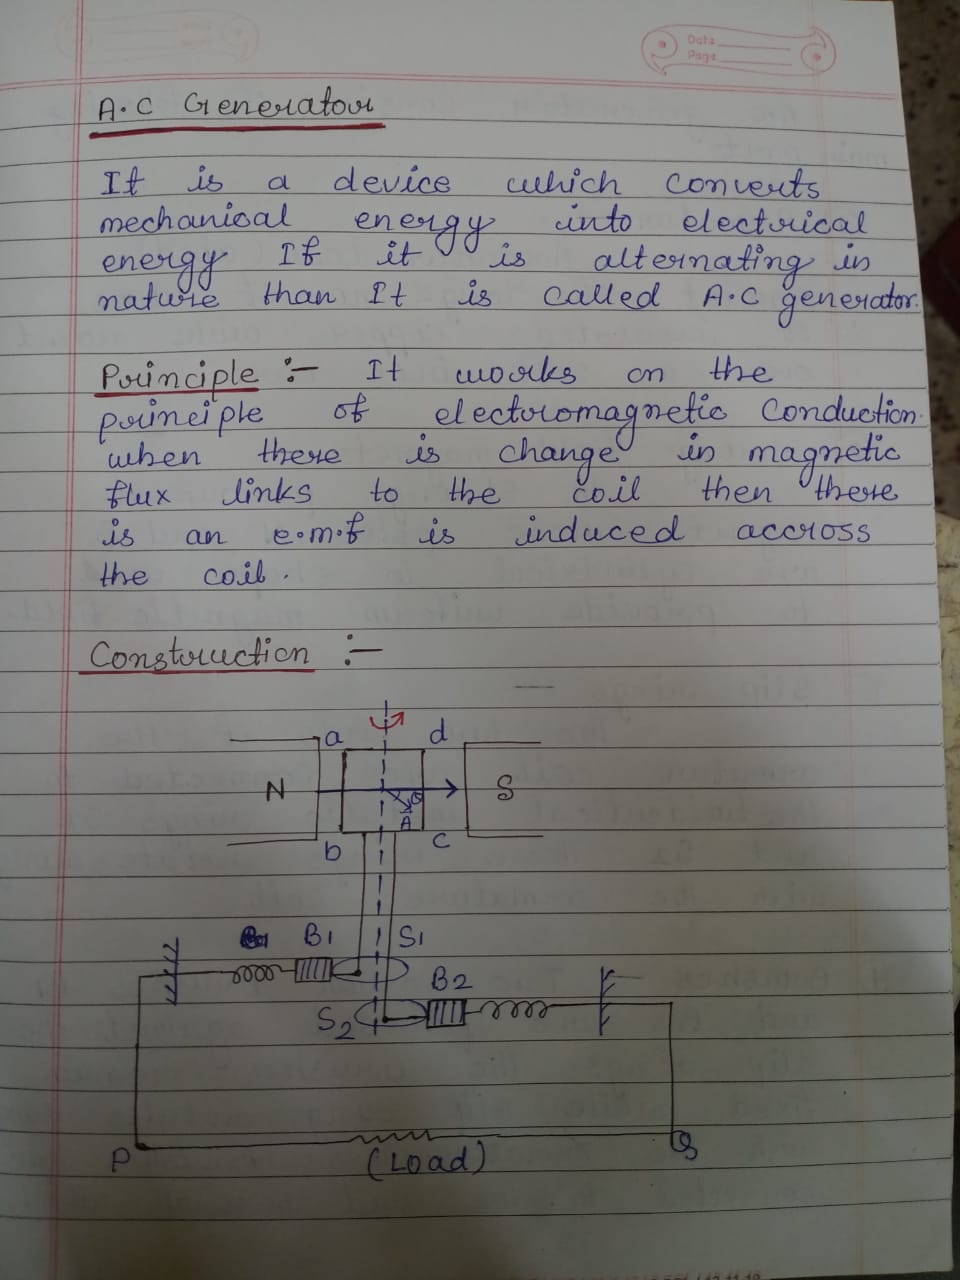 Date
Page
A.C Generator
It is a device which converts
mechanical energy into electrical
energy If it is alternating in
nature than It is called A.C generator.
Principle :- It works on the
principle of electromagnetic Conduction.
when there is change in magnetic
flux links to the coil then there
is an e.m.f is induced accross
the coil.
Construction :-
a d
N S
θ
A
b c
B1 S1
B2
S2
P Q
(Load)